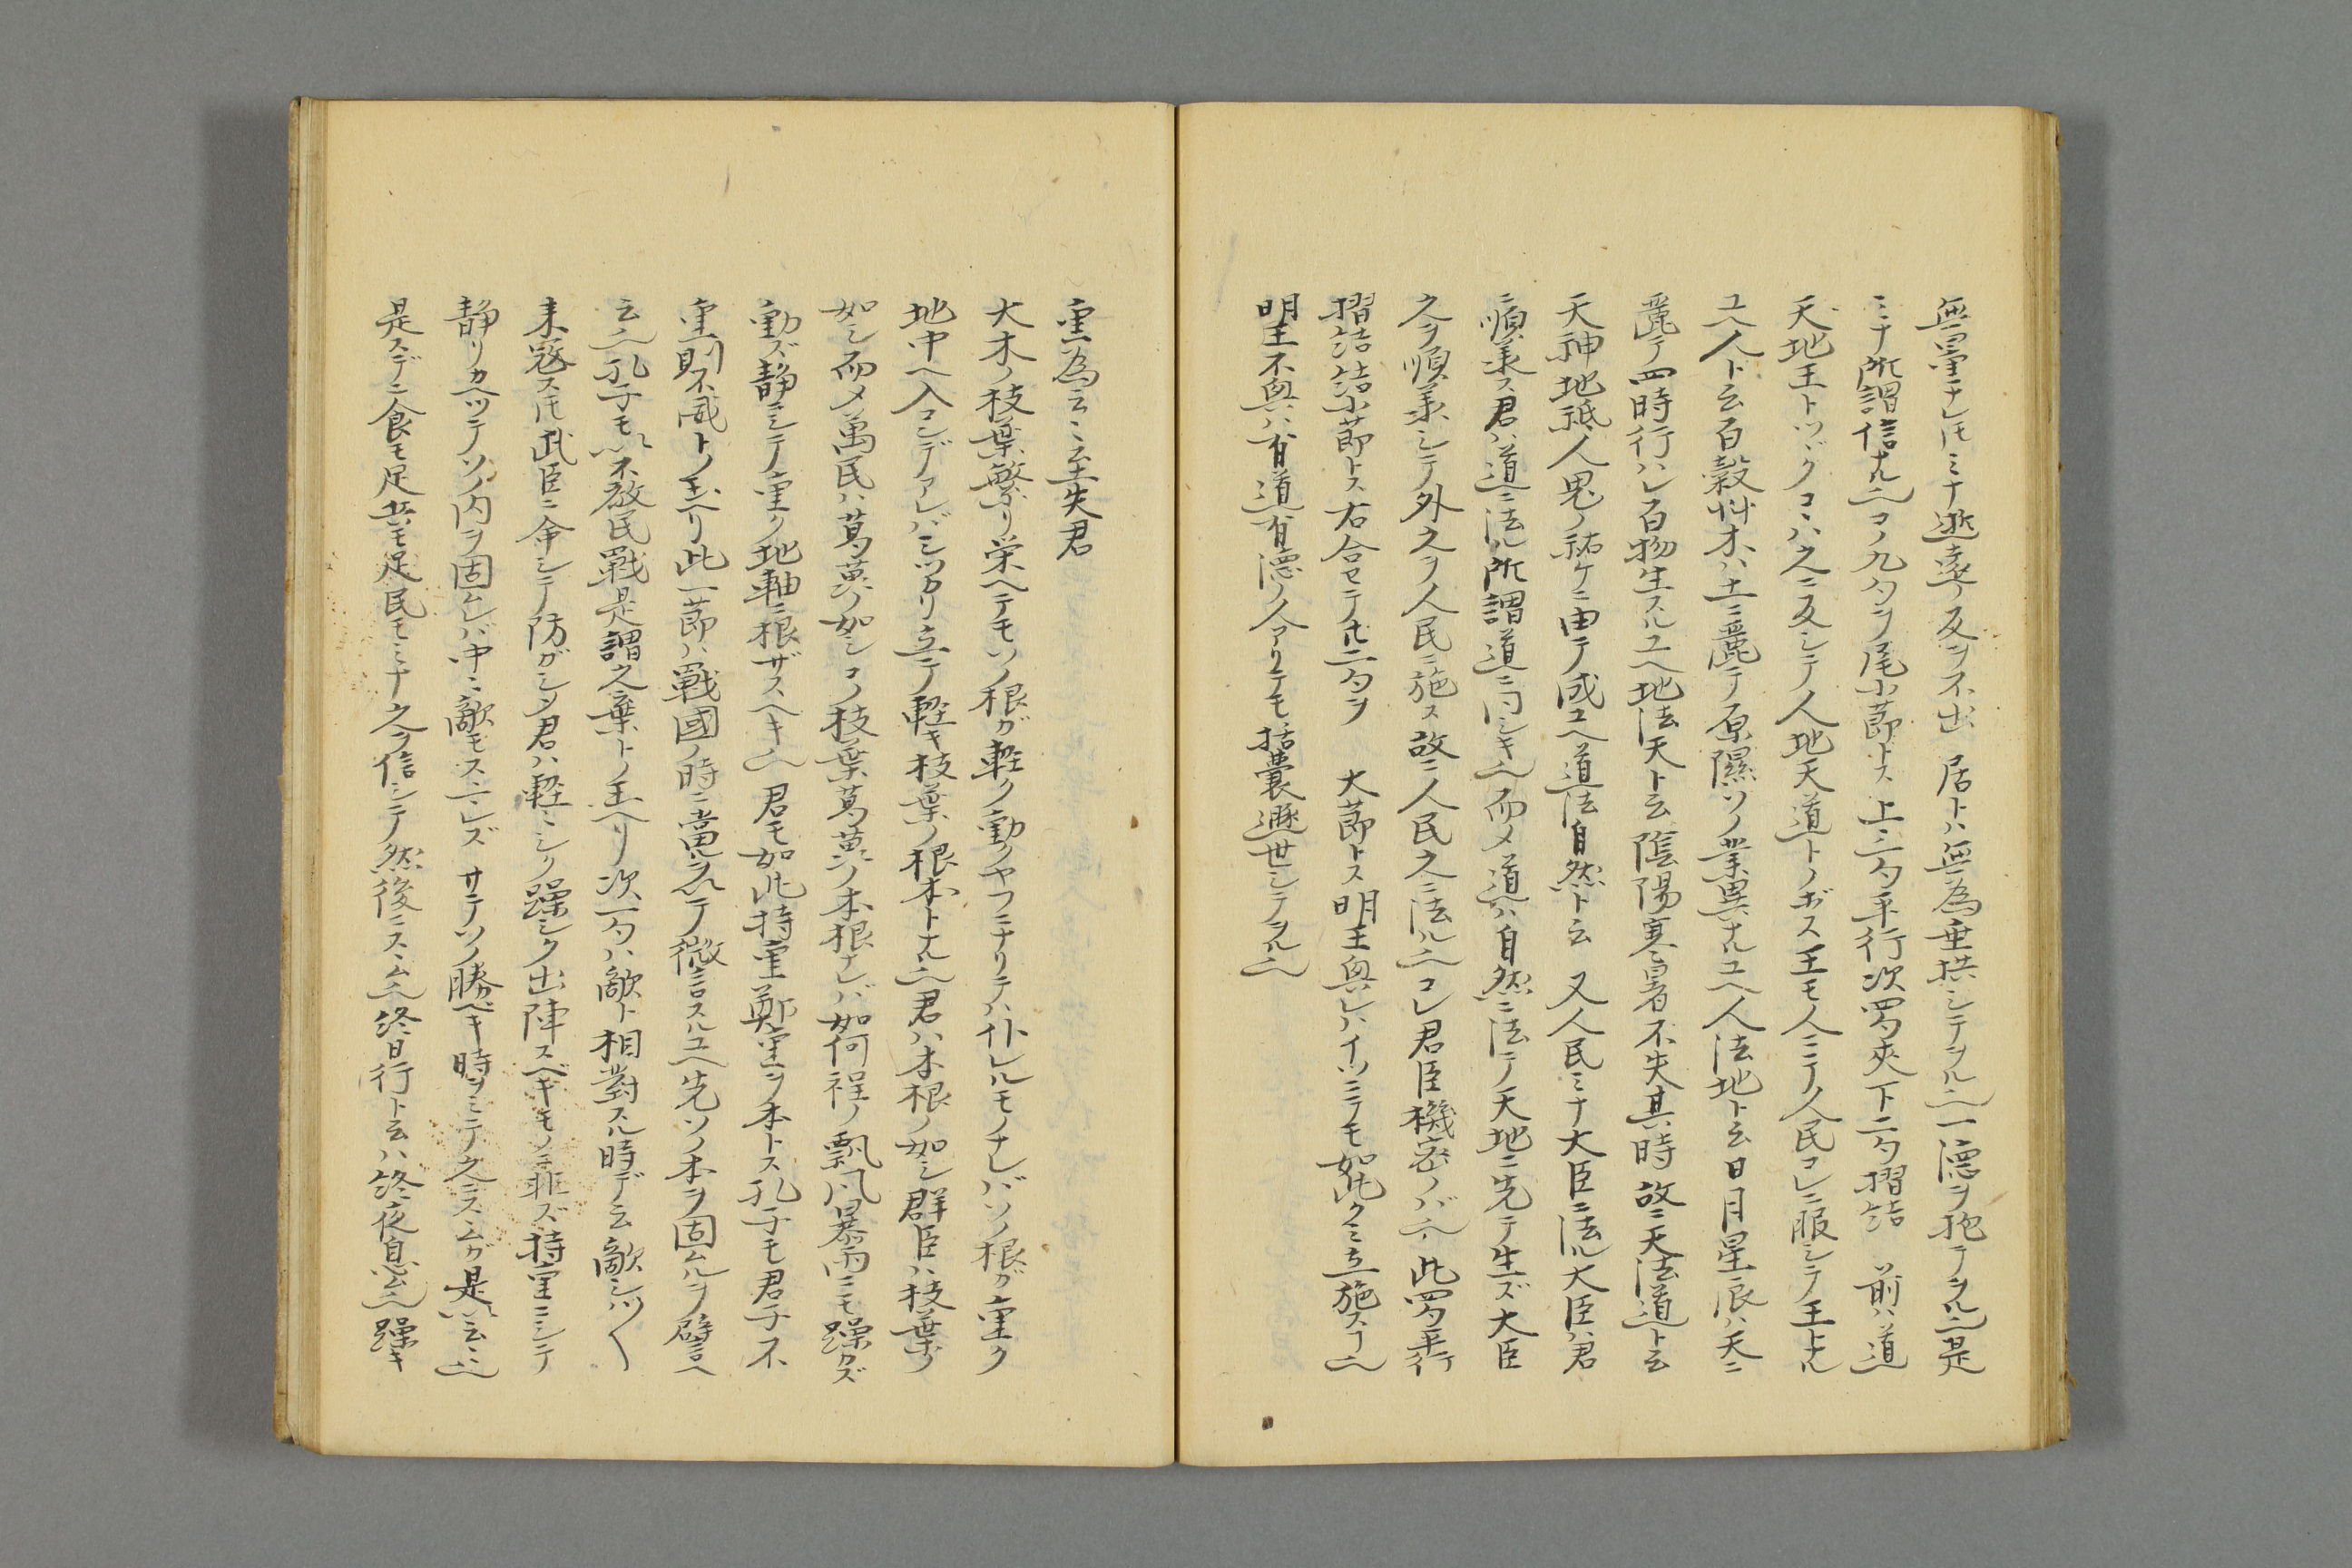 無量ナレ𪜈ミナ逝遠反ヲ不出 居トハ無為垂拱シテヲル也一德ヲ抱テヲル也是
ミナ所謂信ナル也コノ九句ヲ尾小節トス 上三句平行次四句夾下二句摺結 前ハ道
天地王トツヾクコヽハ之ニ反シテ人地天道トノボス王モ人ニテ人民コレニ服シテ王トナル
ユヘ人ト云百穀艸木ハ土ニ麗テ原隰ソノ業異ナルユヘ人法地ト云日月星辰ハ天ニ
麗テ四時行ハレ百物生スルユヘ地法天ト云陰陽寒暑不失其時故ニ天法道ト云
天神地祇人鬼ノ祐ケニ由テ成ユヘ道法自然ト云 又人民ミナ大臣ニ法ル大臣ハ君
ニ順承ス君ハ道ニ法ル所謂道ニ同シキ也而〆道ハ自然ニ法テ天地ニ先テ生ズ大臣
之ヲ順承シテ外之ヲ人民ニ施ス故ニ人民之ニ法ル也コレ君臣機密ノバ也此四句平行
摺結結小節トス右合セテ九二句ヲ 大節トス明王與レハイツニテモ如此クミ立施ス也
明王不與ハ有道有德ノ人アリテモ括囊遯世シテヲル也
重為云云至失君
大木ノ枝葉繁リ栄ヘテモソノ根ガ軽ク動クヤフニナリテハ仆レルモノナレバソノ根ガ重ク
地中ヘ入コンデアレバシツカリ立テ軽キ枝葉ノ根本トナル也君ハ本根ノ如シ群臣ハ枝葉ノ
如シ而〆萬民ハ葛藟ノ如シコノ枝葉葛藟ノ本根ナレバ如何程ノ飄風暴雨ニモ躁カズ
動ズ静ニシテ重ク地軸ニ根ザスヘキ也 君モ如此持重鄭重ヲ本トス孔子モ君子不
重則不威トノ玉ヘリ此一節ハ戰國ノ時ニ當テ微言スルユヘ先ソノ本ヲ固ムルヲ譬ヘ
云也孔子モ以不敎民戰是謂之棄トノ玉ヘリ次一句ハ敵ト相對スル時デ云敵シバ〱
来寇ス𪜈武臣ニ命シテ防ガシメ君ハ軽〻シク躁シク出陣スベキモノニ非ズ持重ニシテ
静リカヘツテソノ内ヲ固ムレバ中〻敵モスヽミレズ サテソノ勝ベキ時ヲミテ之ニスヽムガ是以云云也
是スデニ食モ足兵モ足民モミナ之ヲ信シテ然後ニスヽム也終日行ト云ハ終夜息ム也躁キ